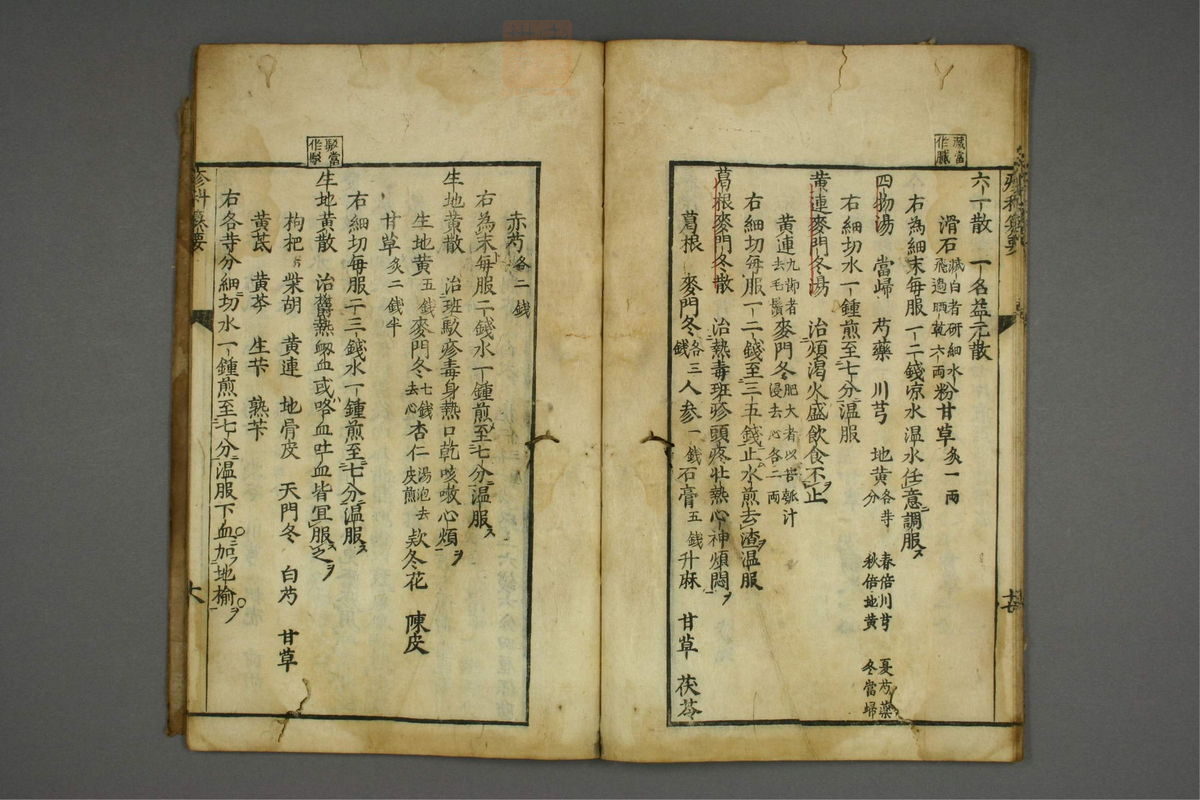 藏當作臓
六一散 一名益元散
滑石 膩白者研細水飛過晒乾六兩 粉甘草 炙一兩
右為細末毎服一二錢凉水温水任意調服
四物湯 當歸 芍藥 川芎 地黄 各等分 春倍川芎 夏芍藥 秋倍地黄 冬當歸
右細切水一鍾煎至七分温服
黄連麥門冬湯 治煩渇火盛飲食不止
黄連 九節者去毛鬚 麥門冬 肥大者以苦瓠汁浸去心各二兩
右細切毎服一二錢至三五錢止水煎去渣温服
葛根麥門冬散 治熱毒班疹頭疼壮熱心神煩悶
葛根 麥門冬 各三錢 人参 一錢 石膏 五錢 升麻 甘草 茯苓
赤芍 各二錢
右為末毎服二錢水一鍾煎至七分温服
生地黄散 治班駁疹毒身熱口乾咳嗽心煩
生地黄 五錢 麥門冬 七錢去心 杏仁 湯泡去皮煎 款冬花 陳皮
甘草 炙二錢半
右細切毎服二三錢水一鍾煎至七分温服
生地黄散 治欝熱衂血或咯血吐血皆宜服之
枸杷 柴胡 黄連 地骨皮 天門冬 白芍 甘草
黄芪 黄芩 生芐 熟芐
右各等分細切水一鍾煎至七分温服下血加地榆
疹科纂要